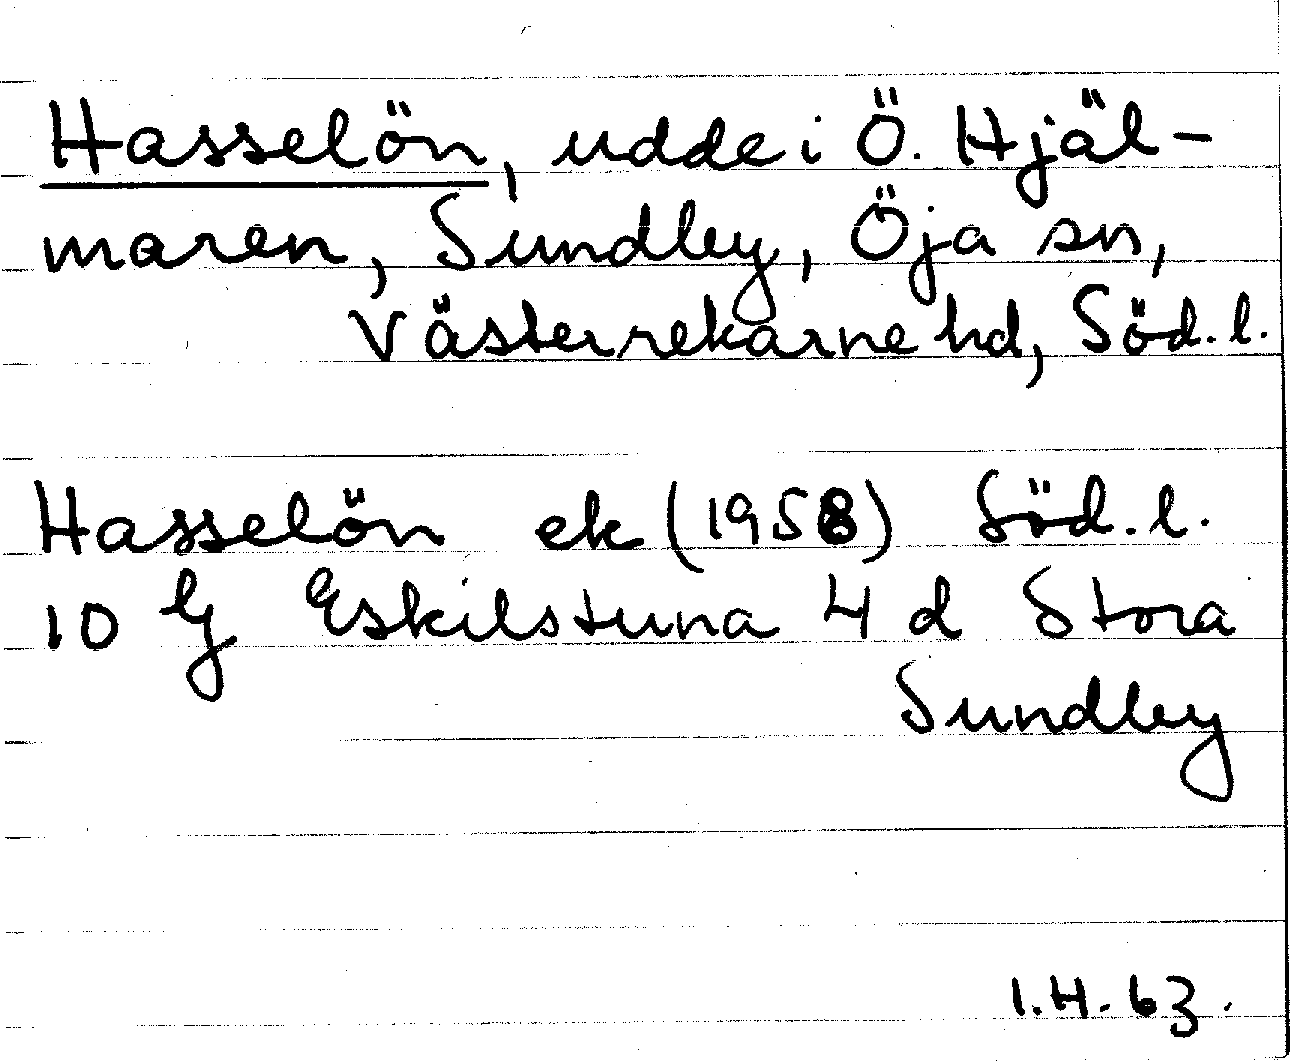 Hasselön, udde i Ö. Hjäl-
maren, Sundby, Öja sn,
Västerrekarne hd, Söd. l.
Hasselön ek (1958) Söd. l.
10 G Eskilstuna 4 d Stora
Sundby
I.H. 63.